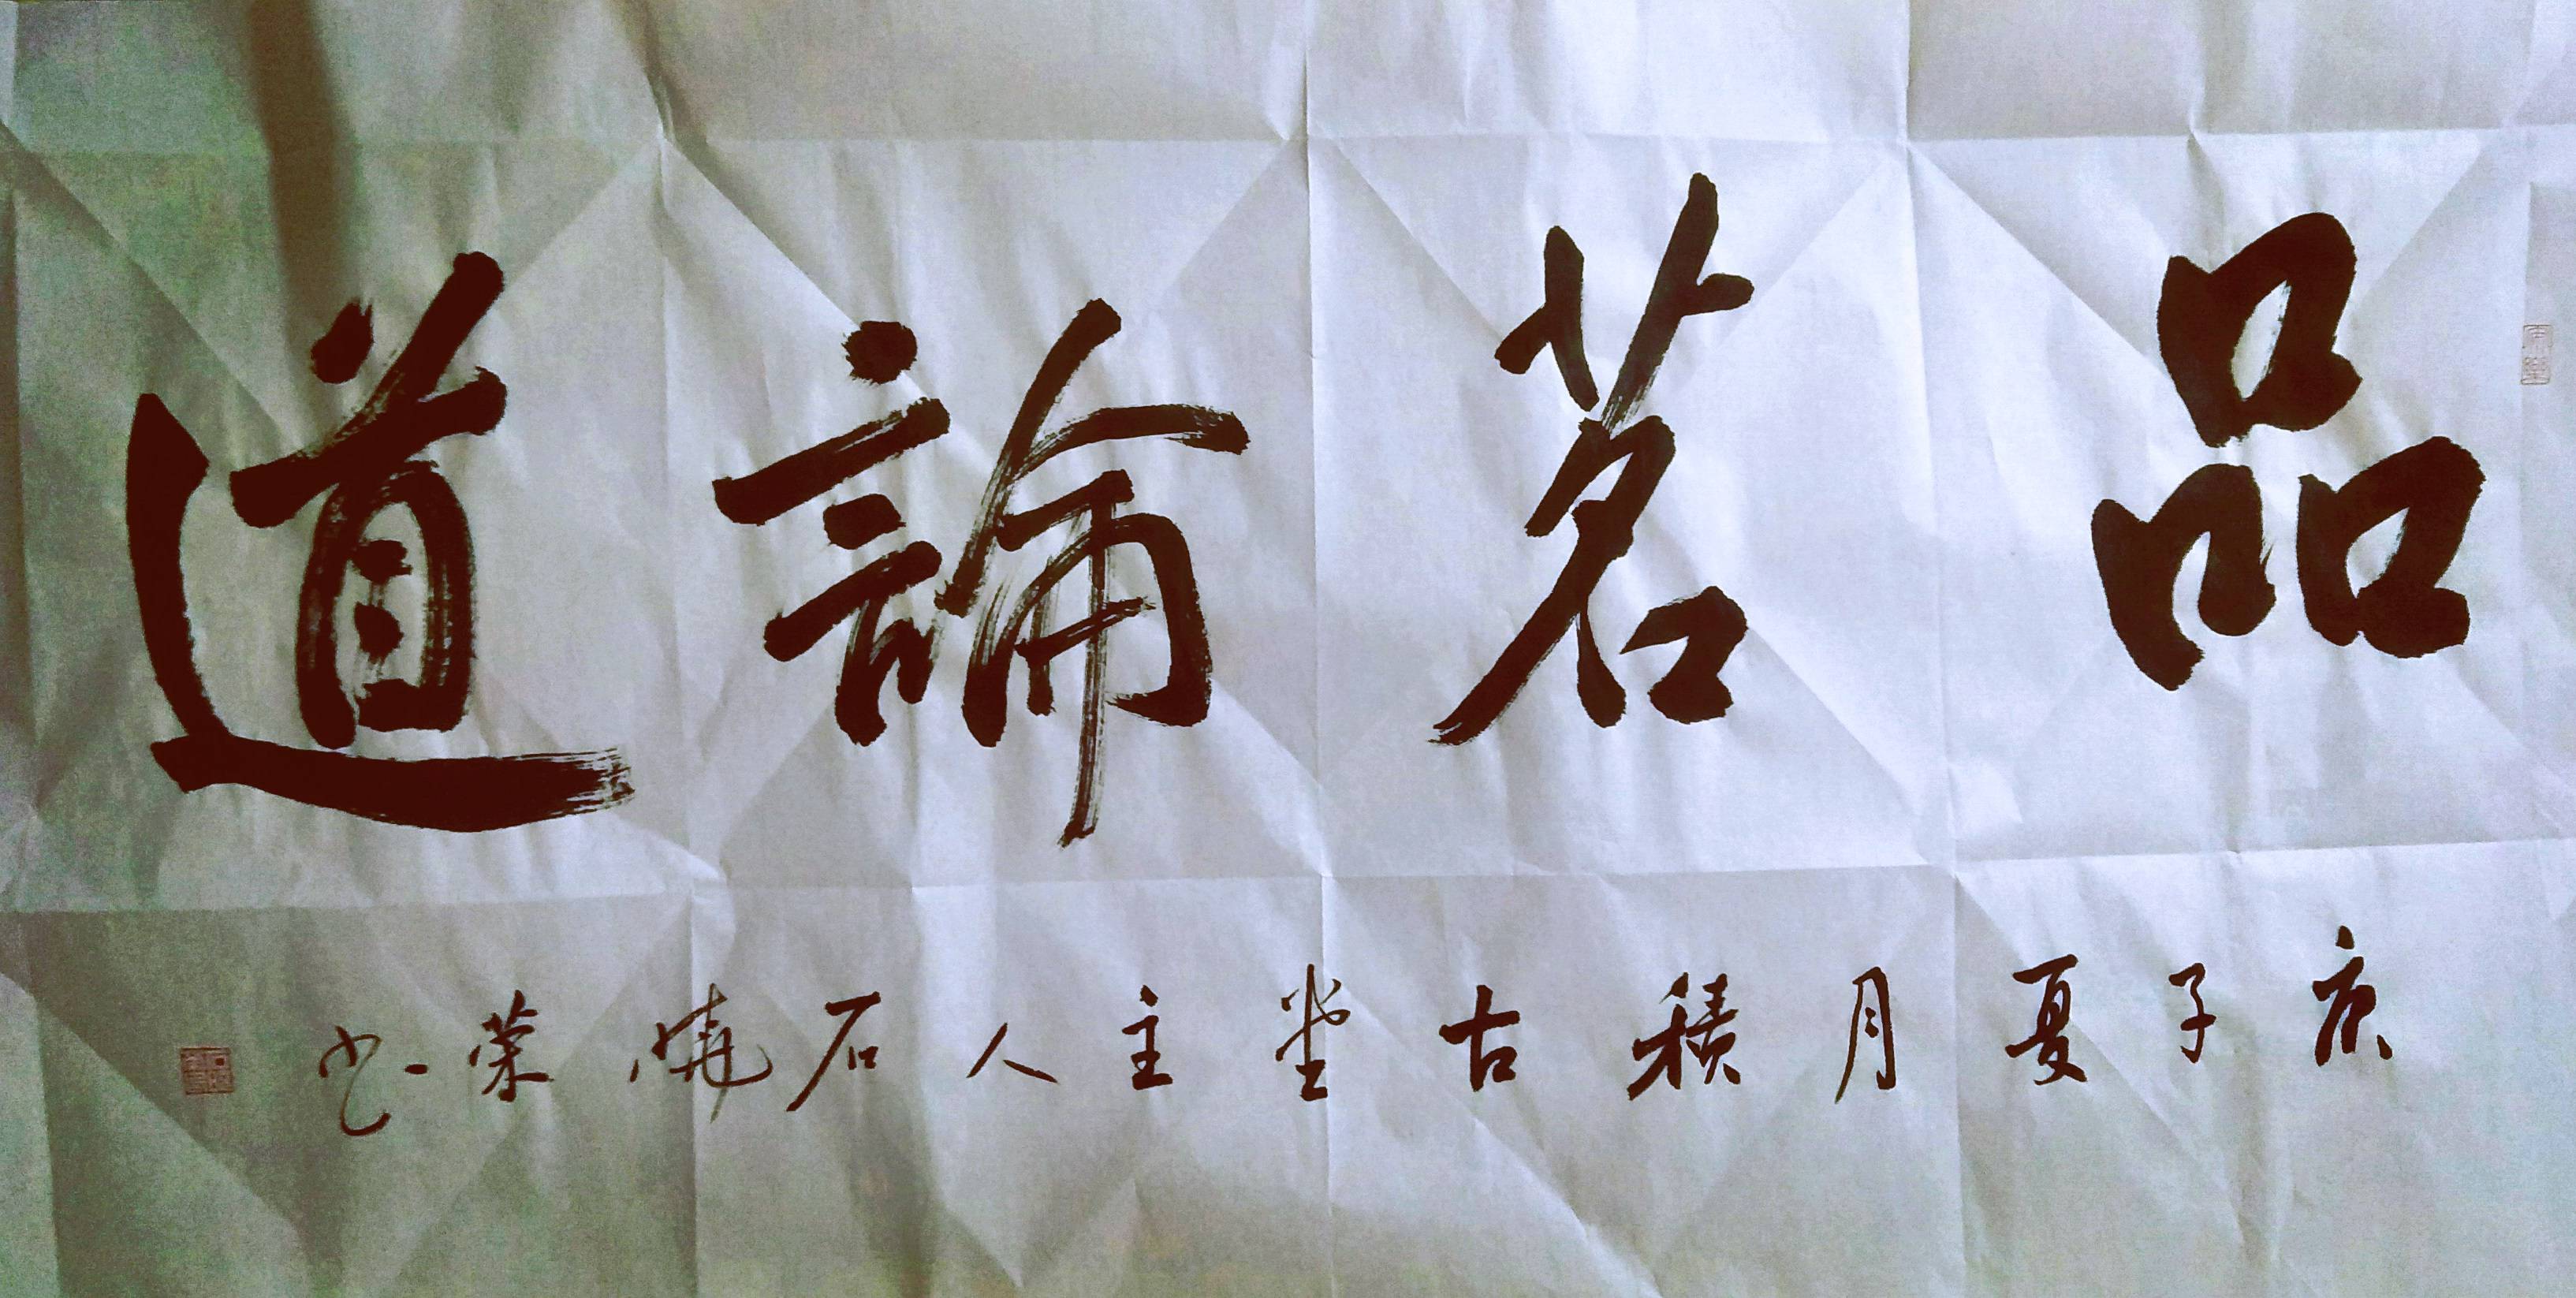 品茗論道
庚子夏月積古堂主人石曉荣书